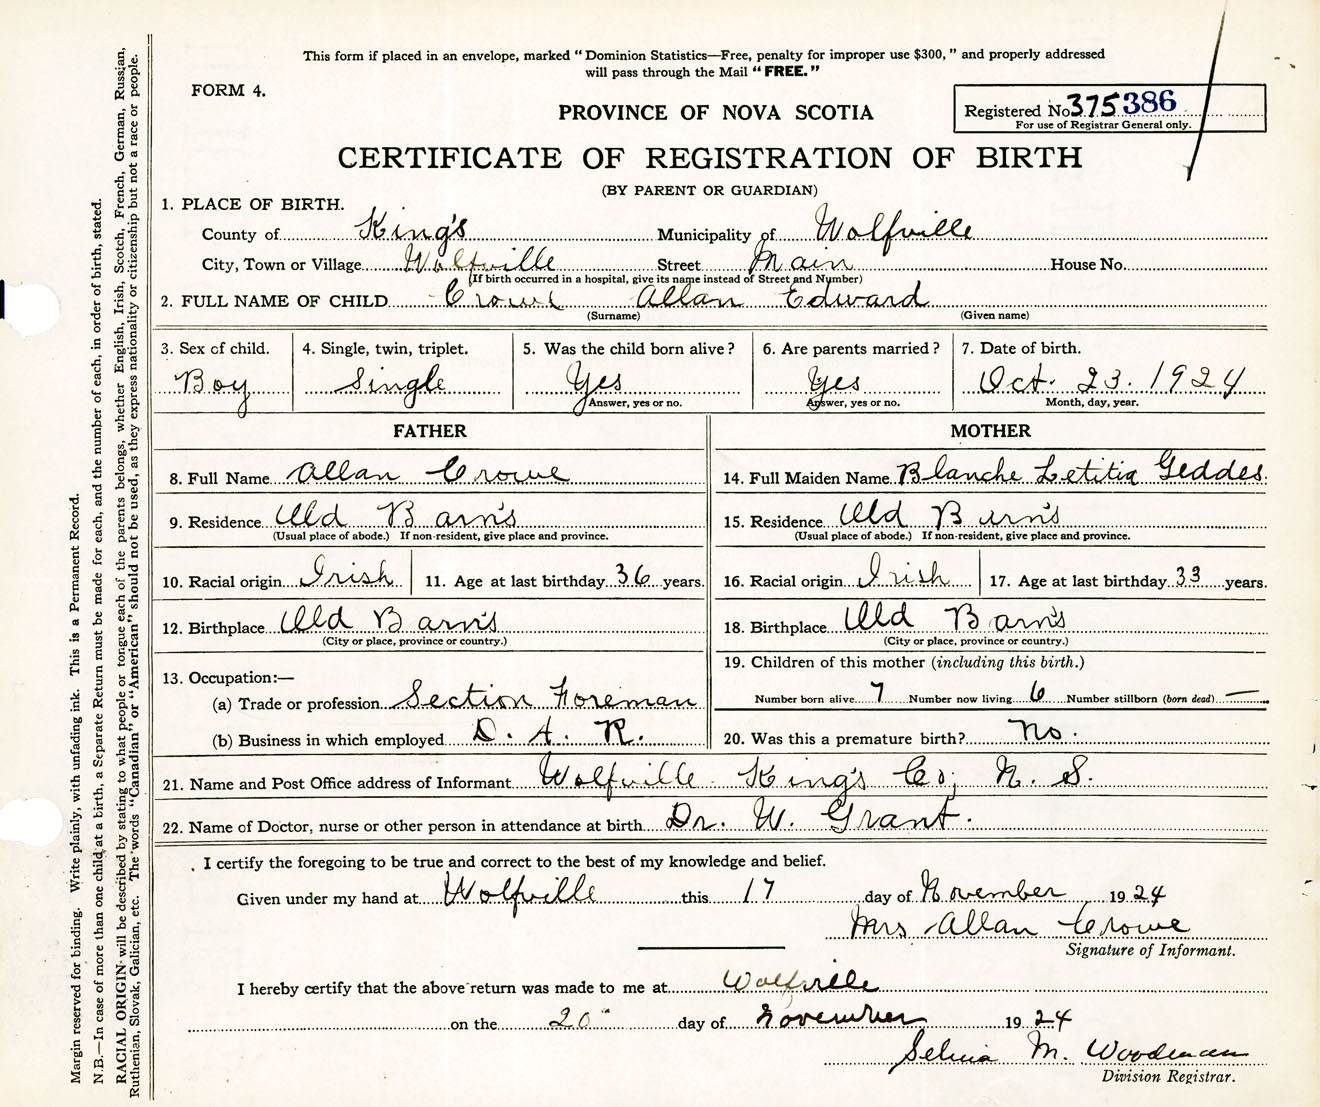 This form if placed in an envelope, marked "Dominion Statistics—Free, penalty for improper use $300," and properly addressed
will pass through the Mail "FREE."
FORM 4.
PROVINCE OF NOVA SCOTIA
Registered No. 375386
For use of Registrar General only.
CERTIFICATE OF REGISTRATION OF BIRTH
(BY PARENT OR GUARDIAN)
1. PLACE OF BIRTH.
County of King's Municipality of Wolfville
City, Town or Village Wolfville Street Main House No.
(If birth occurred in a hospital, give its name instead of Street and Number)
2. FULL NAME OF CHILD Crowe Allan Edward
(Surname) (Given name)
3. Sex of child. 4. Single, twin, triplet. 5. Was the child born alive? 6. Are parents married? 7. Date of birth.
Boy Single Yes Yes Oct. 23. 1924
Answer, yes or no. Answer, yes or no. Month, day, year.
FATHER MOTHER
8. Full Name Allan Crowe 14. Full Maiden Name Blanche Letitia Geddes.
9. Residence Old Barn's 15. Residence Old Barn's
(Usual place of abode.) If non-resident, give place and province. (Usual place of abode.) If non-resident, give place and province.
10. Racial origin Irish 11. Age at last birthday 36 years. 16. Racial origin Irish 17. Age at last birthday 33 years.
12. Birthplace Old Barn's 18. Birthplace Old Barn's
(City or place, province or country.) (City or place, province or country.)
13. Occupation:—
(a) Trade or profession Section Foreman
(b) Business in which employed D. A. R.
19. Children of this mother (including this birth.)
Number born alive 7 Number now living 6 Number stillborn (born dead) —
20. Was this a premature birth? No.
21. Name and Post Office address of Informant Wolfville King's Co; N. S.
22. Name of Doctor, nurse or other person in attendance at birth Dr. W. Grant.
I certify the foregoing to be true and correct to the best of my knowledge and belief.
Given under my hand at Wolfville this 17 day of November 1924
Mrs Allan Crowe
Signature of Informant.
I hereby certify that the above return was made to me at Wolfville
on the 20" day of November 1924
M. Woodman
Division Registrar.
Margin reserved for binding. Write plainly, with unfading ink. This is a Permanent Record.
N.B.—In case of more than one child at a birth, a Separate Return must be made for each, and the number of each, in order of birth, stated.
RACIAL ORIGIN will be described by stating to what people or tongue each of the parents belongs, whether English, Irish, Scotch, French, German, Russian,
Ruthenian, Slovak, Galician, etc. The words "Canadian" or "American" should not be used, as they express nationality or citizenship but not a race or people.